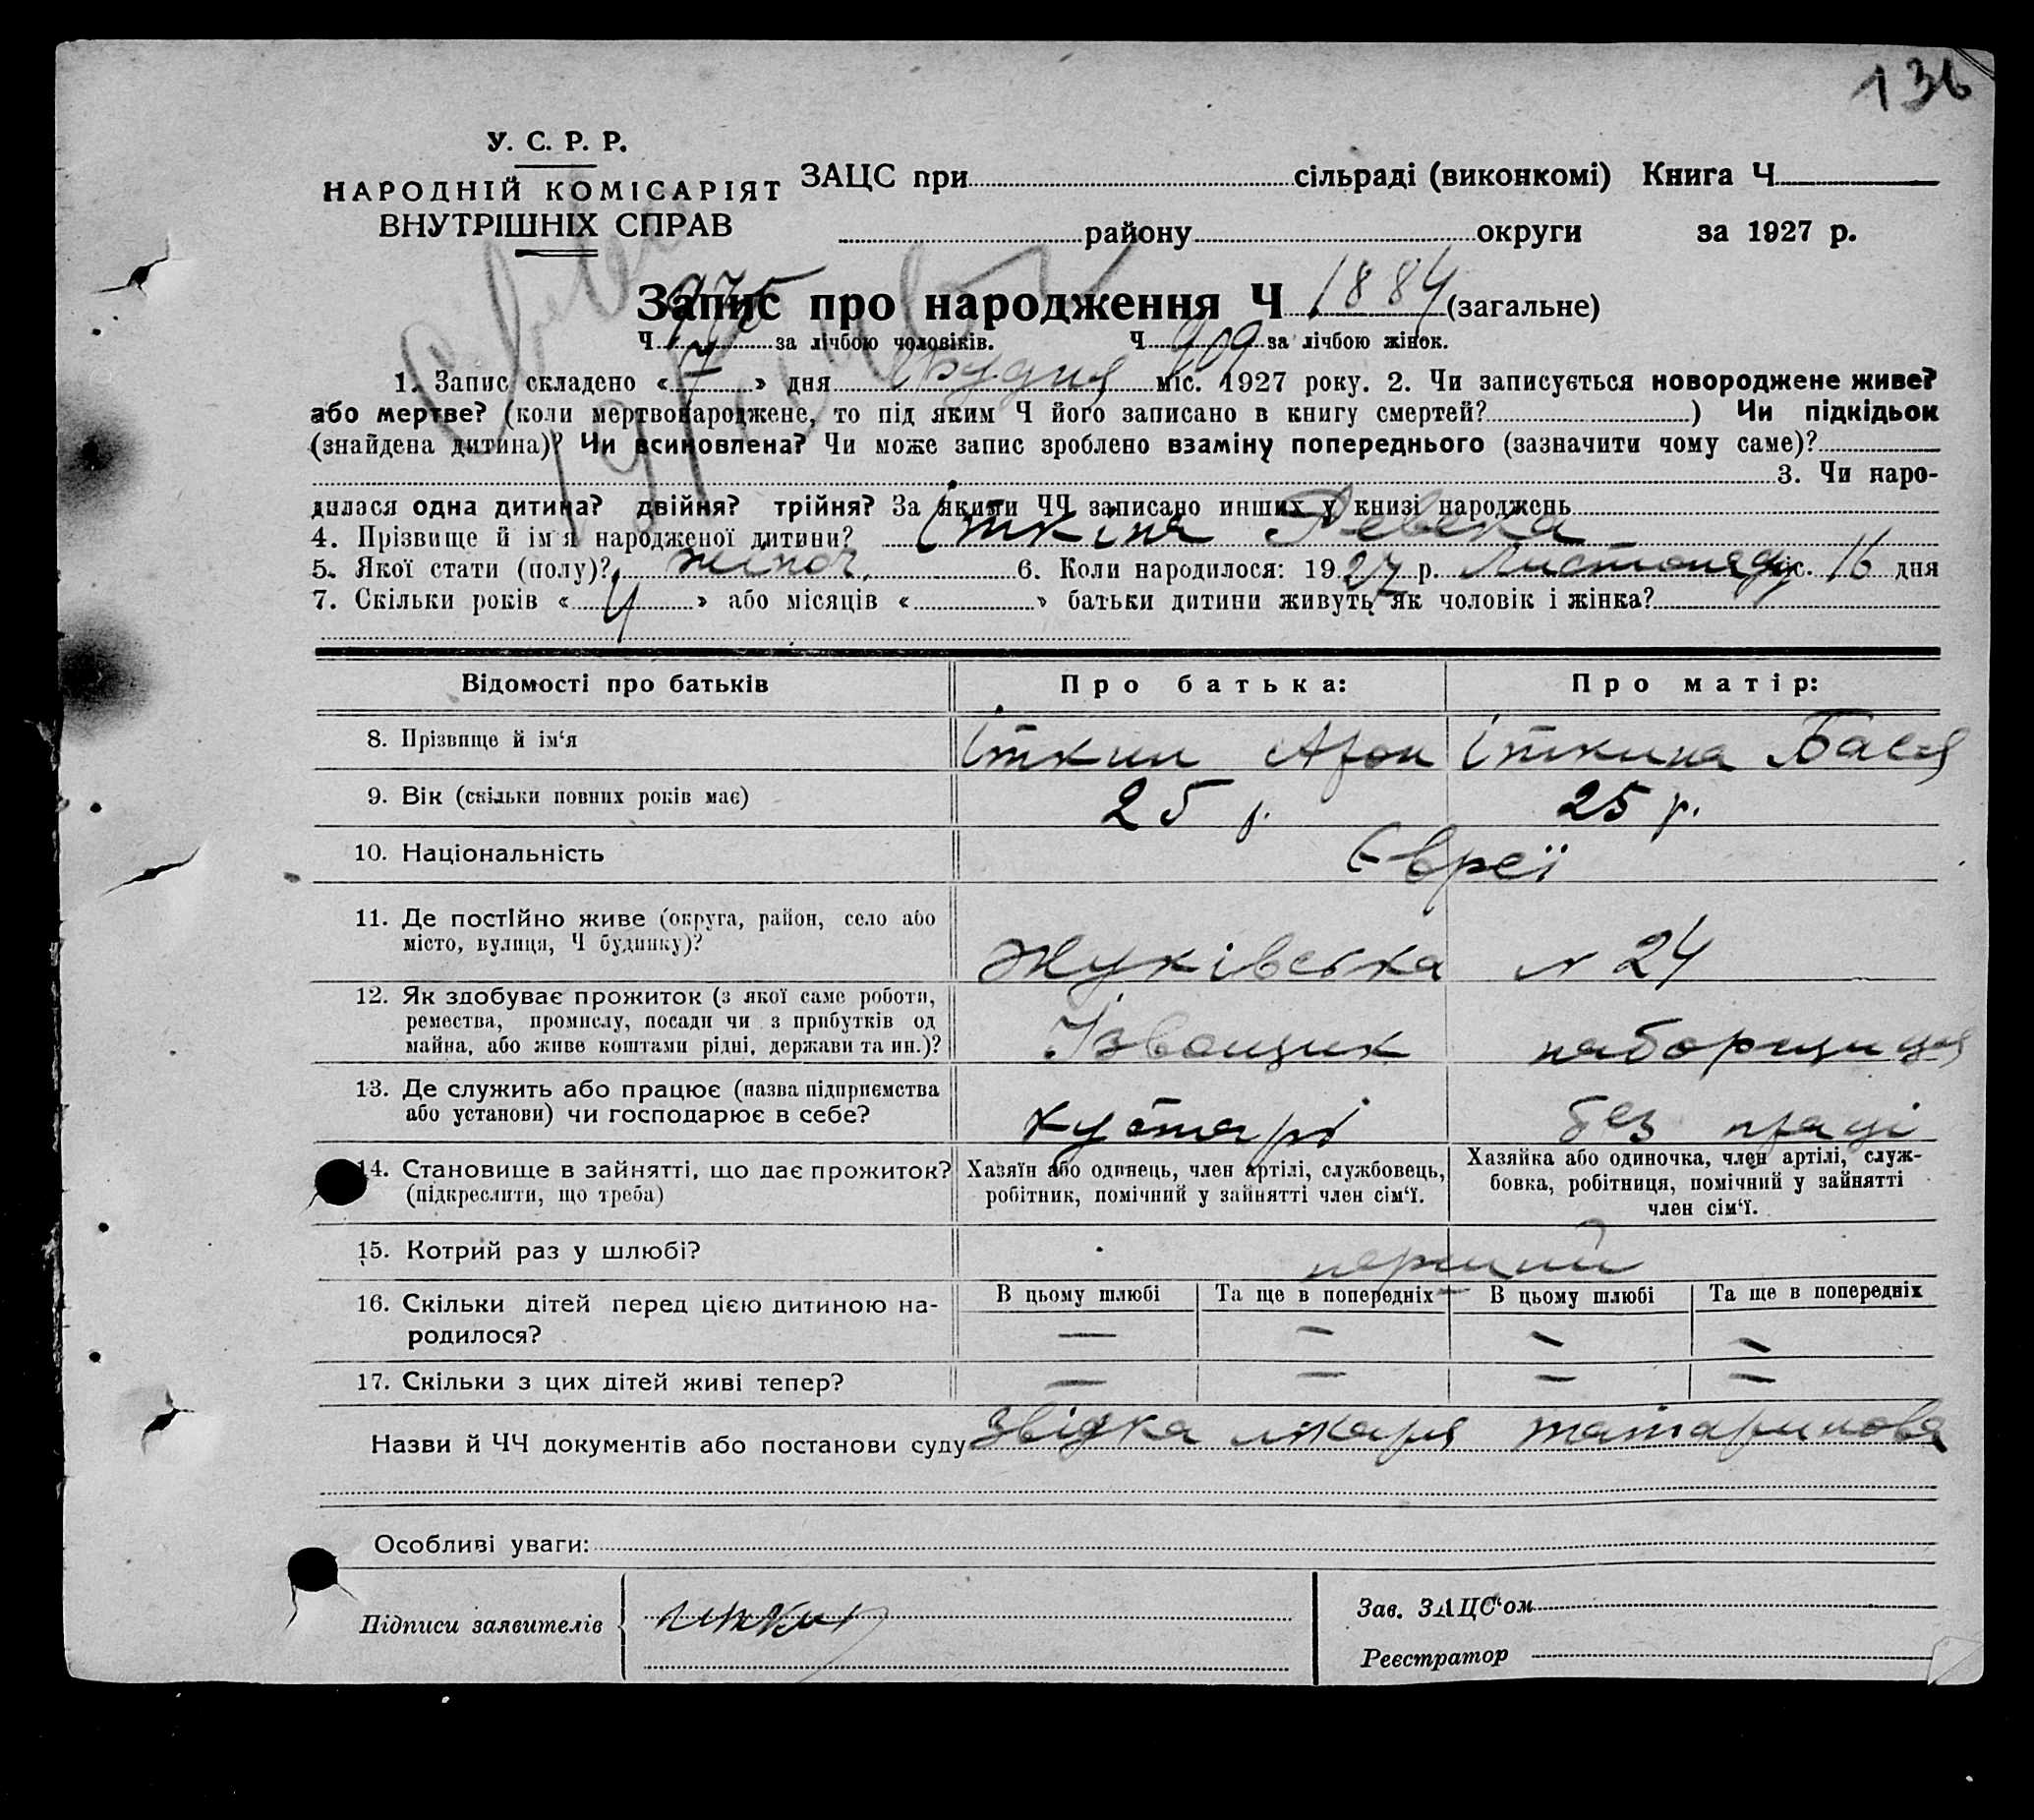 136
У. С. Р. Р.
НАРОДНІЙ КОМІСАРІЯТ
ВНУТРІШНІХ СПРАВ
ЗАЦС при сільраді (виконкомі) Книга Ч
району округи за 1927 р.
Запис про народження Ч 1884 (загальне)
Ч 975 за лічбою чоловіків. Ч 909 за лічбою жінок.
1. Запис складено « 7 » дня Грудня міс. 1927 року. 2. Чи записується новороджене живе?
або мертве? (коли мертвонароджене, то під яким Ч його записано в книгу смертей? ) Чи підкідьок
(знайдена дитина)? Чи всиновлена? Чи може запис зроблено взаміну попереднього (зазначити чому саме)?
3. Чи наро-
дилася одна дитина? двійня? трійня? За якими ЧЧ записано инших у книзі народжень
4. Прізвище й ім'я народженої дитини? Іткіна Ревека
5. Якої стати (полу)? жіноч. 6. Коли народилося: 1927 р. Листопаду міс. 16 дня
7. Скільки років « 4 » або місяців « » батьки дитини живуть як чоловік і жінка?
Відомості про батьків Про батька: Про матір:
8. Прізвище й ім'я Іткин Арон Іткина Бася
9. Вік (скільки повних років має) 25 р. 25 р.
10. Національність Євреї
11. Де постійно живе (округа, район, село або
місто, вулиця, Ч будинку)? Жуківська № 24
12. Як здобуває прожиток (з якої саме роботи,
ремества, промислу, посади чи з прибутків од
майна, або живе коштами рідні, держави та ин.)? Ізвощик наборщиця
13. Де служить або працює (назва підприємства
або установи) чи господарює в себе? кустарі без праці
14. Становище в зайнятті, що дає прожиток?
(підкреслити, що треба)
Хазяїн або одинець, член артілі, службовець,
робітник, помічний у зайнятті член сім'ї.
Хазяйка або одиночка, член артілі, служ-
бовка, робітниця, помічний у зайнятті
член сім'ї.
15. Котрий раз у шлюбі? перший
16. Скільки дітей перед цією дитиною на-
родилося?
В цьому шлюбі Та ще в попередніх В цьому шлюбі Та ще в попередніх
— — — —
17. Скільки з цих дітей живі тепер? — — — —
Назви й ЧЧ документів або постанови суду Звідка лікаря Татаринова
Особливі уваги:
Підписи заявителів Иткин
Зав. ЗАЦС'ом
Реєстратор